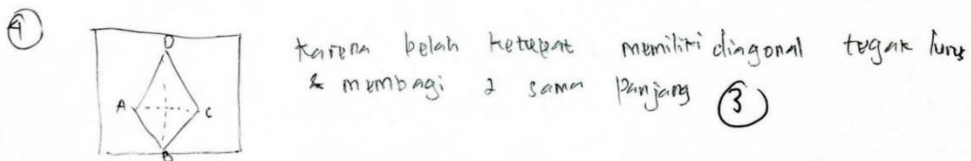 4
D
A
C
B
karena belah ketupat memiliki diagonal tegak lurus
& membagi 2 sama panjang
3